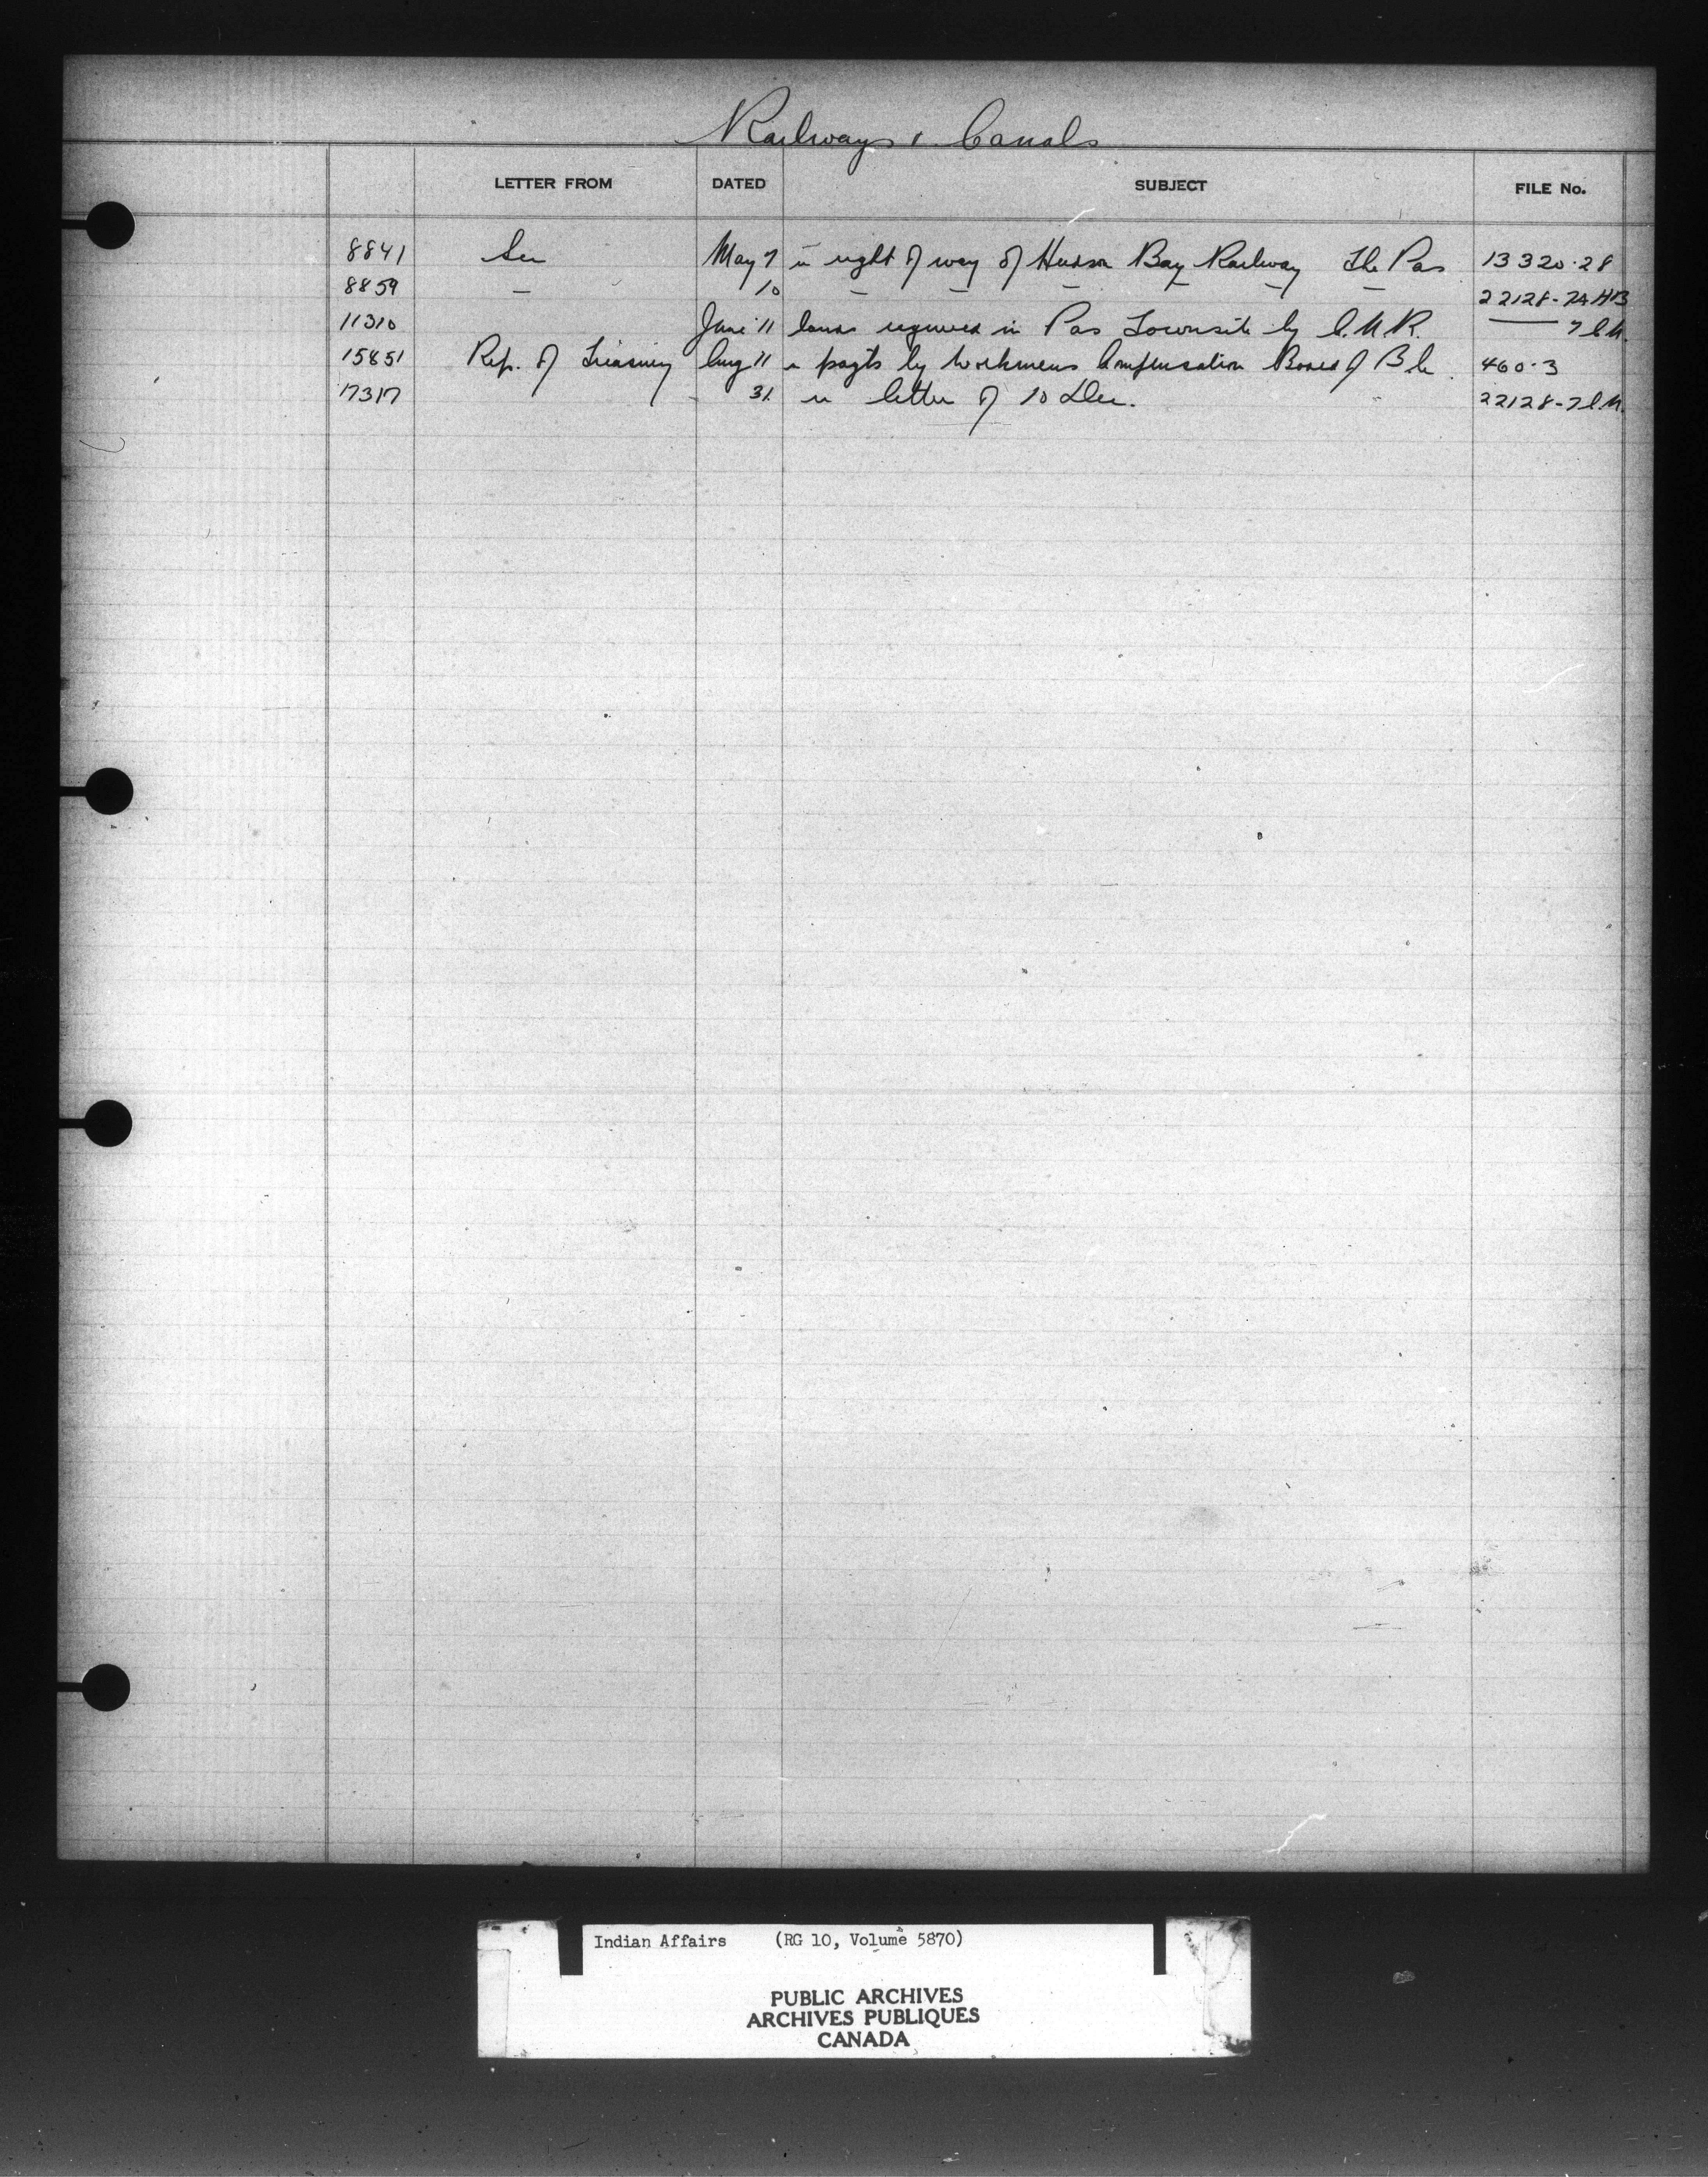 Railways & Canals
LETTER FROM DATED SUBJECT FILE No.
8841 Sec May 7 re right of way of Hudson Bay Railway The Pas 13320-28
8859 — 10 — — — — — — 22128-7A HB
11310 June 11 lands required in Pas Townsite by C.N.R. —— 7 C.N.
15851 Rep. of Treasury Aug 11 re paymts by Workmens Compensation Board of B.C. 460-3
17317 31 re letter of 10 Dec. 22128-7 C.N.
Indian Affairs (RG 10, Volume 5870)
PUBLIC ARCHIVES
ARCHIVES PUBLIQUES
CANADA